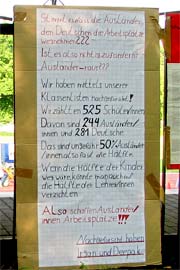 Stimmt es, dass die Ausländer
den Deutschen die Arbeitsplätze
wegnehmen???
Ist es also nicht gut zu fordern:
Ausländer raus???
Wir haben mittels unserer
Klassenlisten nachgeforscht!
Wir zählten 525 Schüler/innen
Davon sind 244 Ausländer/
innen und 281 Deutsche.
Das sind ungefähr 50% Ausländer
/innen, also fast die Hälfte.
Wenn die Hälfte der Kinder
weg wäre, könnte man auch auf
die Hälfte der Lehrer/innen
verzichten.
Also schaffen Ausländer/
innen Arbeitsplätze!!!
Nachgeforscht haben
und Deepak.